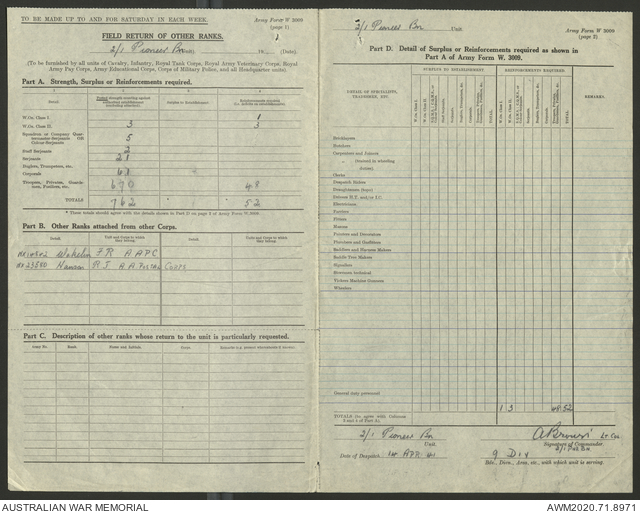 TO BE MADE UP TO AND FOR SATURDAY IN EACH WEEK.
Army Form W 3009
(page 1)
FIELD RETURN OF OTHER RANKS.
2/1 Pioneer Bn (Unit) (Date).
(To be furnished by all units of Cavalry, Infantry, Royal Tank Corps, Royal Army Veterinary Corps, Royal
Army Pay Corps, Army Educational Corps, Corps of Military Police, and all Headquarter units).
Part A. Strength, Surplus or Reinforcements required.
Detail
Surplus to Establishment
Reinforcements required
1 2 3 4
W.Os. Class I 1
W.Os. Class II 3 3
Squadron or Company Quarter-Master-Serjeants OR Colour-Serjeants 5
Staff Serjeants 2
Serjeants 21
Bugles, Trumpeters, etc.
Corporals 61
Troopers, Privates, Guardsmen, Fusiliers, etc. 670 48
TOTALS 762 52
* These totals should agree with the details shown in Part D on page 2 of Army Form W.3009
Part B. Other Ranks attached from other Corps.
Detail. Unit and Corps to which they belong. Detail. Unit and Corps to which they belong.
Wakelin F R A A P C
NX23580 Hansen R J A.A. Postal Corps
Part C. Description of other ranks whose return to the unit is particularly requested.
Army No. Rank. Name and Initials. Corps.
2/1 Pioneer Bn Unit
Army Form W 3009
(page 2)
Part D. Detail of Surplus or Reinforcements required as shown in
Part A of Army Form W. 3009.
DETAIL OF SPECIALISTS, TRADESMEN, ETC.
SURPLUS TO ESTABLISHMENT
REINFORCEMENTS REQUIRED
W.Os. Class I.
W.Os. Class II.
TOTAL
REMARKS.
Bricklayers
Butchers
Carpenters and Joiners
" (trained in wheeling duties)
Clerks
Despatch Riders
Draughtsmen (topo)
Drivers H.T. and/or I.C.
Electricians
Farriers
Fitters
Masons
Painters and Decorators
Plumbers and Gasfitters
Saddlers and Harness Makers
Saddle Tree Makers
Signallers
Storemen technical
Vickers Machine Gunners
Wheelers
General duty personnel
TOTALS (to agree with Columns
3 and 4 of Part A).
1 3 48 52
2/1 Pioneer Bn
Unit.
A Brown Lt Col
Signature of Commander
2/1 Pnr Bn
Date of Despatch. 1st APR 41
9 Div
Bde., Divn., Area, etc., with which unit is serving.
AUSTRALIAN WAR MEMORIAL
AWM2020.71.8971